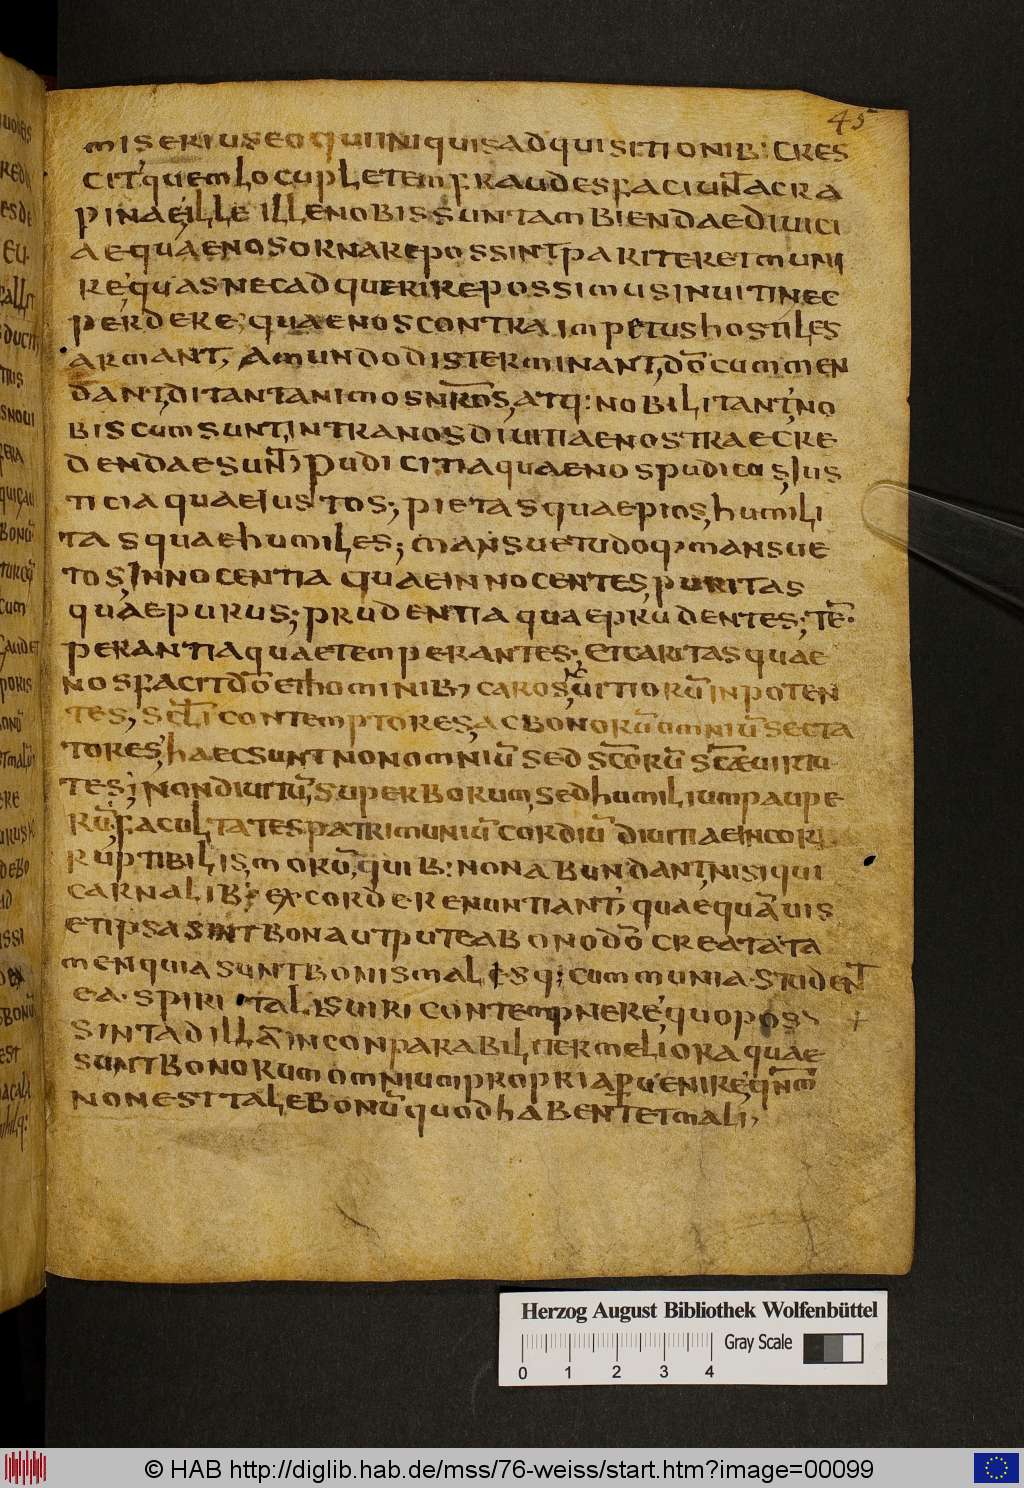 45
miserius eo qui iniquis adquisitionib: cres
cit, quem locupletem fraudes faciunt ac ra
pinae; ille illenobis sunt ambiendae diuici
ae quae nos ornare possint pariter et muni
re, quas nec adquerire possimus inuiti nec
perdere; quae nos contra impetus hostiles
armant, a mundo disterminant, dō cummen
dant, ditant animos nr̄os, atq: nobilitant, no
biscum sunt, intra nos diuitiae nostrae cre
dendae sunt; Pudicitia quae nos pudicos, Jus
ticia quae Justos; pietas quae pios, humili
tas quae humiles; mansuetudo q; mansue
tos, Innocentia quae innocentes, puritas
quae purus; prudentia quae prudentes; tē
perantia quae temperantes; Et caritas quae
nos facit dō et hominib; caros, uitiorū inpoten
tes, scl̄i contemptores, ac bonorū omniū secta
tores, haec sunt non omniū sed sc̄orū sc̄ae uirtu
tes; non diuitū, superborum, sed humilium paupe
rū, facultates patrimuniū cordiū diuitiae incor
ruptibilis morū, quib: non abundant, nisi qui
carnalib: ex corde renuntiant, quae quāuis
et ipsa sint bona utpute a bono dō creata ta
men quia sunt bonis malesq; cummunia. student
ea. spiritalis uiri contempnere, quo pos
sint ad illā inconparabiliter meliora quae
sunt bonorum omnium propria peruenire, qn̄m
non est tale bonū quod habent et mali,
Herzog August Bibliothek Wolfenbüttel
Gray Scale
0 1 2 3 4
© HAB http://diglib.hab.de/mss/76-weiss/start.htm?image=00099